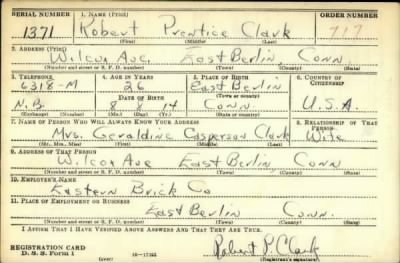 SERIAL NUMBER 1. NAME (Print) ORDER NUMBER
1371 Robert Prentice Clark 717
(First) (Middle) (Last)
2. ADDRESS (Print)
Wilcox Ave. East Berlin, Conn.
(Number and street or R. F. D. number) (Town) (County) (State)
3. TELEPHONE 4. AGE IN YEARS 5. PLACE OF BIRTH 6. COUNTRY OF CITIZENSHIP
6318-M 26 East Berlin
(Town or county)
DATE OF BIRTH
N.B. 8 14 Conn U.S.A.
(Exchange) (Number) (Mo.) (Day) (Yr.) (State or country)
7. NAME OF PERSON WHO WILL ALWAYS KNOW YOUR ADDRESS 8. RELATIONSHIP OF THAT PERSON
Mrs. Geraldine Casperson Clark Wife
(Mr., Mrs., Miss) (First) (Middle) (Last)
9. ADDRESS OF THAT PERSON
Wilcox Ave East Berlin, Conn
(Number and street or R. F. D. number) (Town) (County) (State)
10. EMPLOYER'S NAME
Eastern Brick Co
11. PLACE OF EMPLOYMENT OR BUSINESS
East Berlin Conn.
(Number and street or R. F. D. number) (Town) (County) (State)
I AFFIRM THAT I HAVE VERIFIED ABOVE ANSWERS AND THAT THEY ARE TRUE.
REGISTRATION CARD
D. S. S. Form 1 (over) Robert P. Clark
(Registrant's signature)